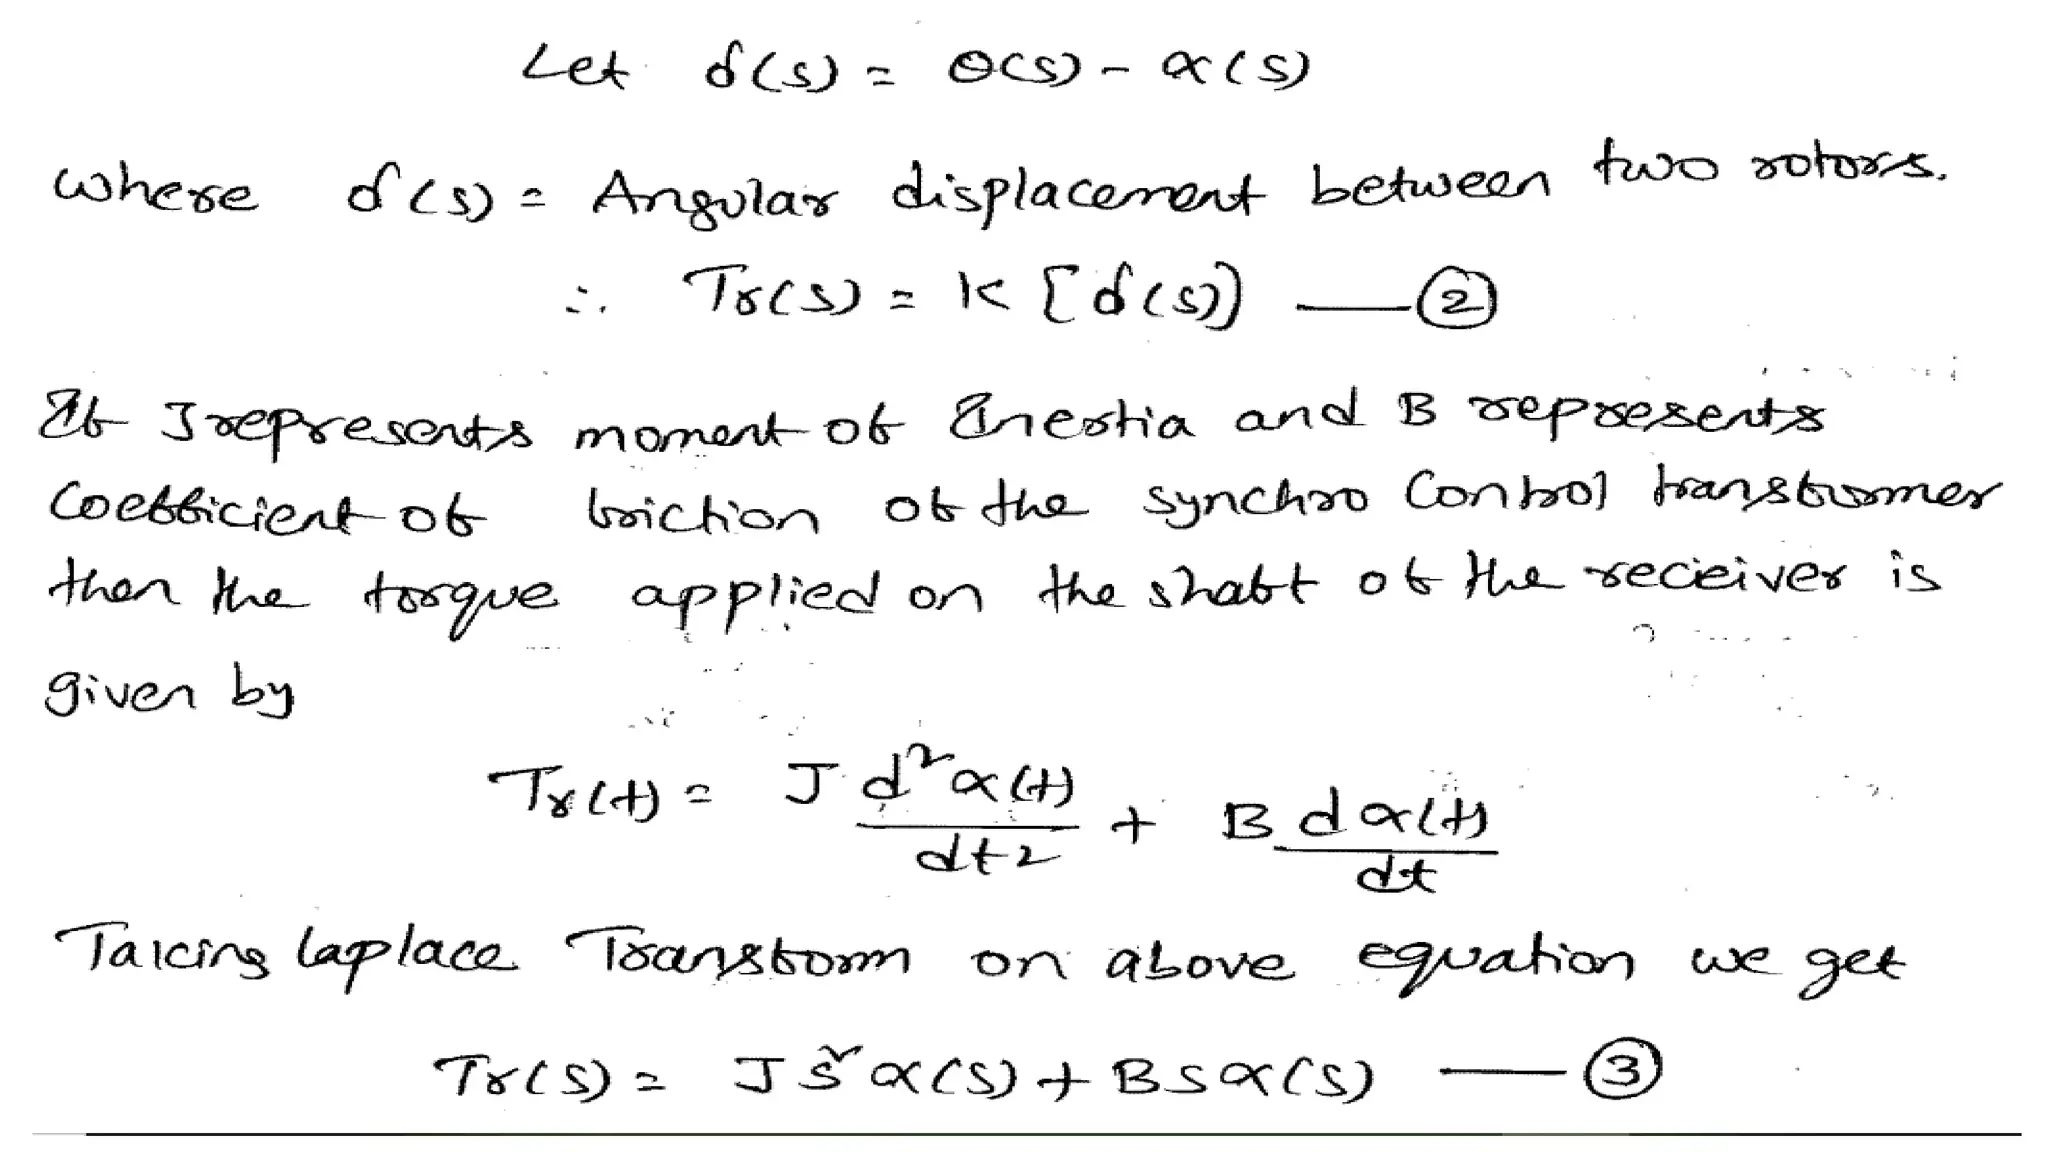 Let δ(s) = θ(s) - α(s)
where δ(s) = Angular displacement between two rotors.
∴ Tr(s) = K [δ(s)] — ②
If J represents moment of Inertia and B represents
Coefficient of friction of the synchro Control transformer
then the torque applied on the shaft of the receiver is
given by
Tr(t) = J d²α(t)/dt2 + B dα(t)/dt
Taking laplace Transform on above equation we get
Tr(s) = J s² α(s) + B s α(s) — ③